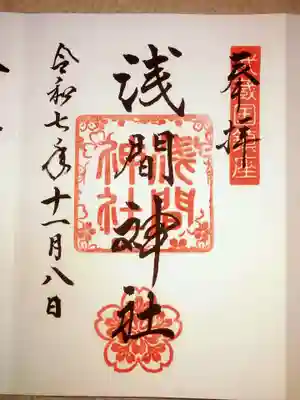 奉拝
武蔵国鎮座
浅間神社
浅間神社
令和七年十一月八日